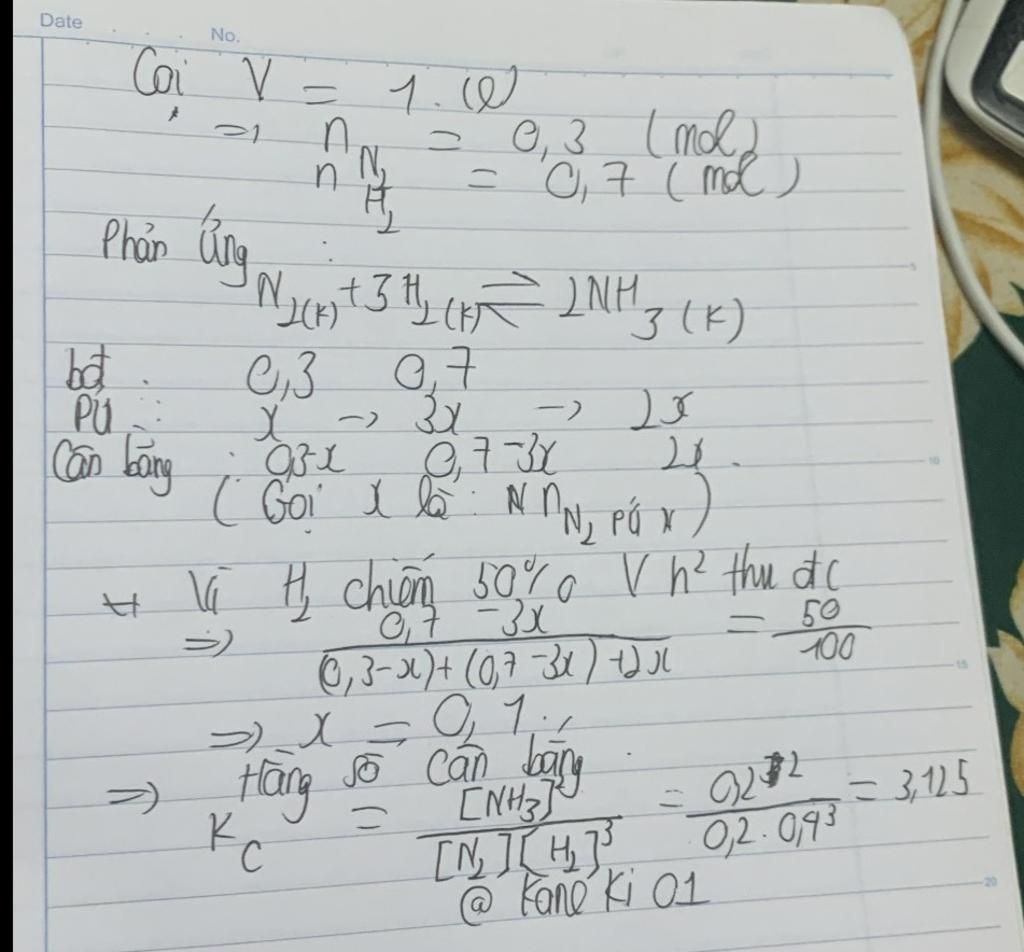 Date No.
Coi V = 1. (l)
=> n N2 = 0,3 (mol)
n H2 = 0,7 (mol)
Phản ứng :
N2(K) + 3H2(K) ⇌ 2NH3(K)
bđ : 0,3 0,7
PƯ : x -> 3x -> 2x
Cân bằng : 0,3-x 0,7-3x 2x.
( Gọi x là : n N2 pứ )
Vì H2 chiếm 50% V h² thu đc
=> 0,7 - 3x / (0,3-x)+(0,7-3x)+2x = 50/100
=> x = 0,1
=> Hằng số cân bằng
KC = [NH3]² / [N2][H2]³ = 0,2² / 0,2.0,4³ = 3,125
@ Kane Ki 01